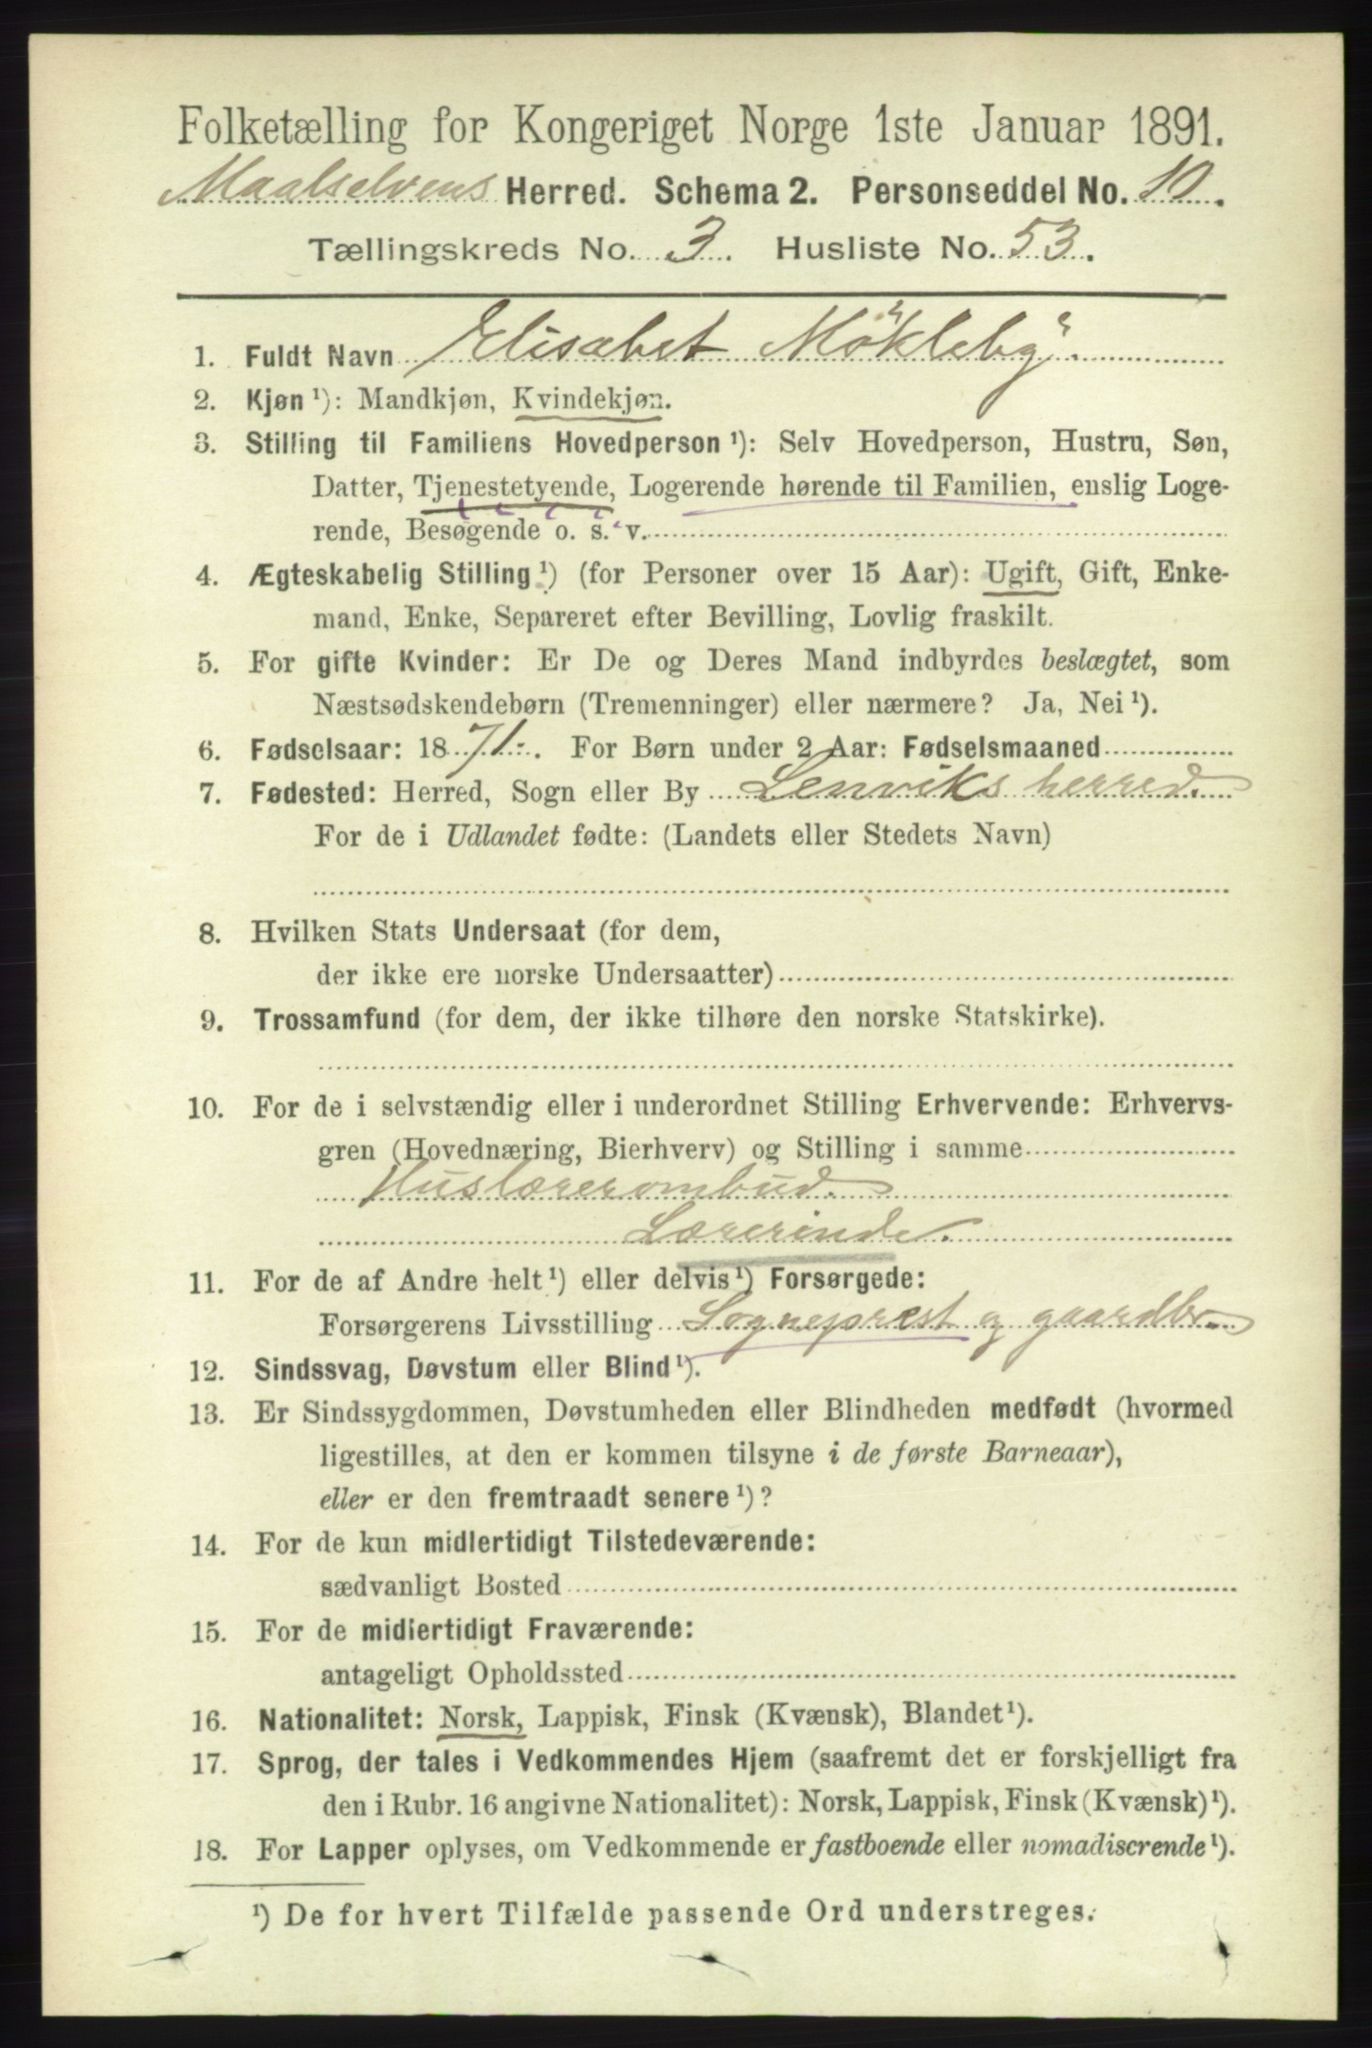 Folketælling for Kongeriget Norge 1ste Januar 1891.
Maalselvens Herred. Schema 2. Personseddel No. 10.
Tællingskreds No. 3. Husliste No. 53.
1. Fuldt Navn Elisabet Mökleby
2. Kjøn ¹): Mandkjøn, Kvindekjøn.
3. Stilling til Familiens Hovedperson ¹): Selv Hovedperson, Hustru, Søn,
Datter, Tjenestetyende, Logerende hørende til Familien, enslig Loge-
rende, Besøgende o. s. v.
4. Ægteskabelig Stilling ¹) (for Personer over 15 Aar): Ugift, Gift, Enke-
mand, Enke, Separeret efter Bevilling, Lovlig fraskilt.
5. For gifte Kvinder: Er De og Deres Mand indbyrdes beslægtet, som
Næstsødskendebørn (Tremenninger) eller nærmere? Ja, Nei ¹).
6. Fødselsaar: 1871. For Børn under 2 Aar: Fødselsmaaned
7. Fødested: Herred, Sogn eller By Lenviks herred.
For de i Udlandet fødte: (Landets eller Stedets Navn)
8. Hvilken Stats Undersaat (for dem,
der ikke ere norske Undersaatter)
9. Trossamfund (for dem, der ikke tilhøre den norske Statskirke).
10. For de i selvstændig eller i underordnet Stilling Erhvervende: Erhvervs-
gren (Hovednæring, Bierhverv) og Stilling i samme
Huslærerombud.
Lærerinde.
11. For de af Andre helt ¹) eller delvis ¹) Forsørgede:
Forsørgerens Livsstilling Sogneprest og gaardbr.
12. Sindssvag, Døvstum eller Blind ¹).
13. Er Sindssygdommen, Døvstumheden eller Blindheden medfødt (hvormed
ligestilles, at den er kommen tilsyne i de første Barneaar),
eller er den fremtraadt senere ¹)?
14. For de kun midlertidigt Tilstedeværende:
sædvanligt Bosted
15. For de midlertidigt Fraværende:
antageligt Opholdssted
16. Nationalitet: Norsk, Lappisk, Finsk (Kvænsk), Blandet ¹).
17. Sprog, der tales i Vedkommendes Hjem (saafremt det er forskjelligt fra
den i Rubr. 16 angivne Nationalitet): Norsk, Lappisk, Finsk (Kvænsk) ¹).
18. For Lapper oplyses, om Vedkommende er fastboende eller nomadiserende ¹).
¹) De for hvert Tilfælde passende Ord understreges.